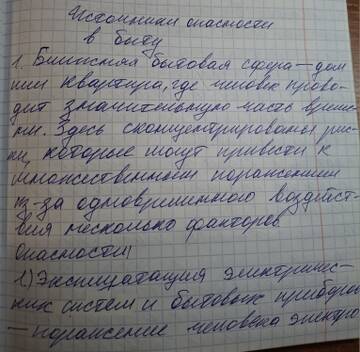 Источники опасности
в быту
1. Ближняя бытовая сфера – дом
или квартира, где человек прово-
дит значительную часть време-
ни. Здесь сконцентрированы рис-
ки, которые могут привести к
множественным поражениям
из-за одновременного воздейст-
вия несколько факторов
опасности
1.) Эксплуатация электричес-
ких систем и бытовых приборов
– поражение человека электро